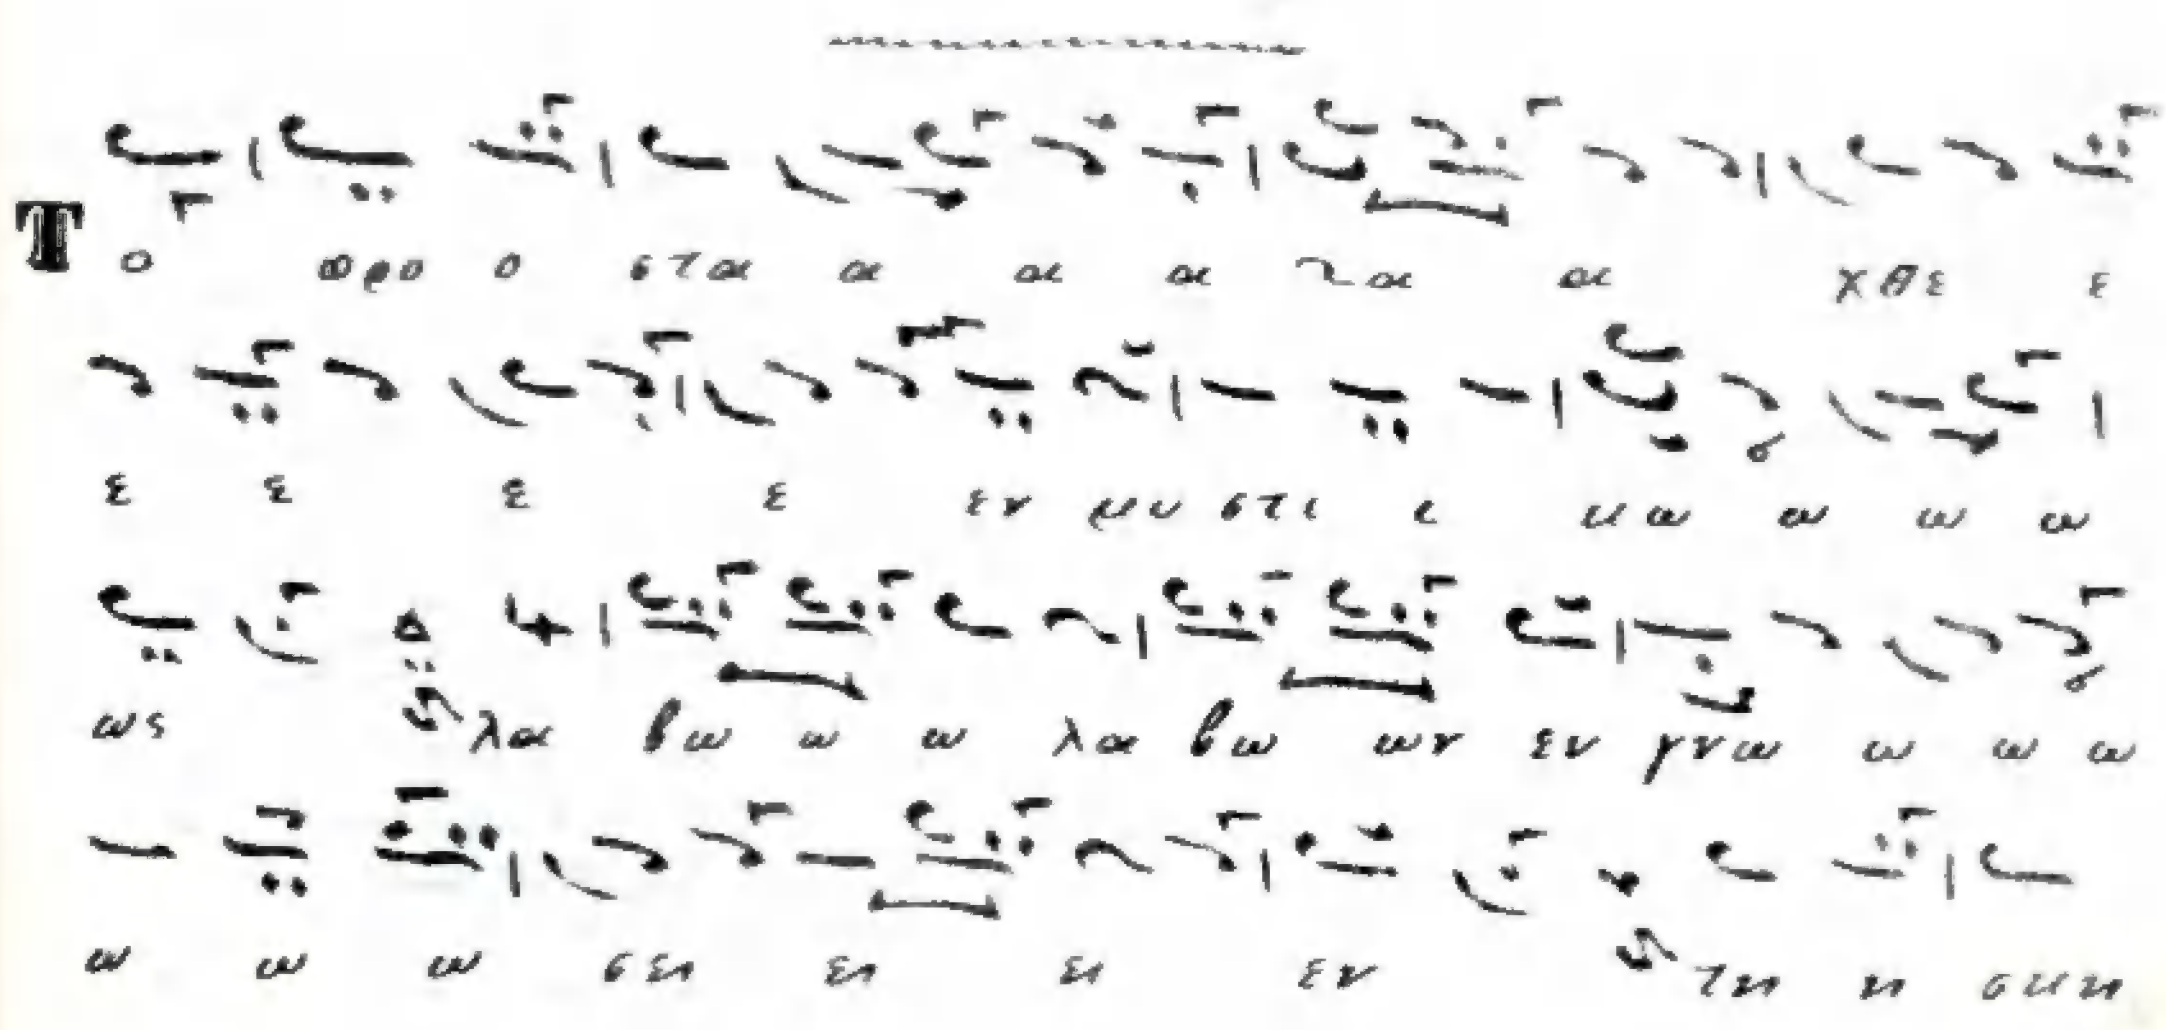 Το ϖρο ο στα α α α τα α χθε ε
ε ε ε ε εν μυ στι ι κω ω ω ω
ως λα βω ω ω λα βω ων εν γνω ω ω ω
ω ω ω σει ει ει εν τη η σκη